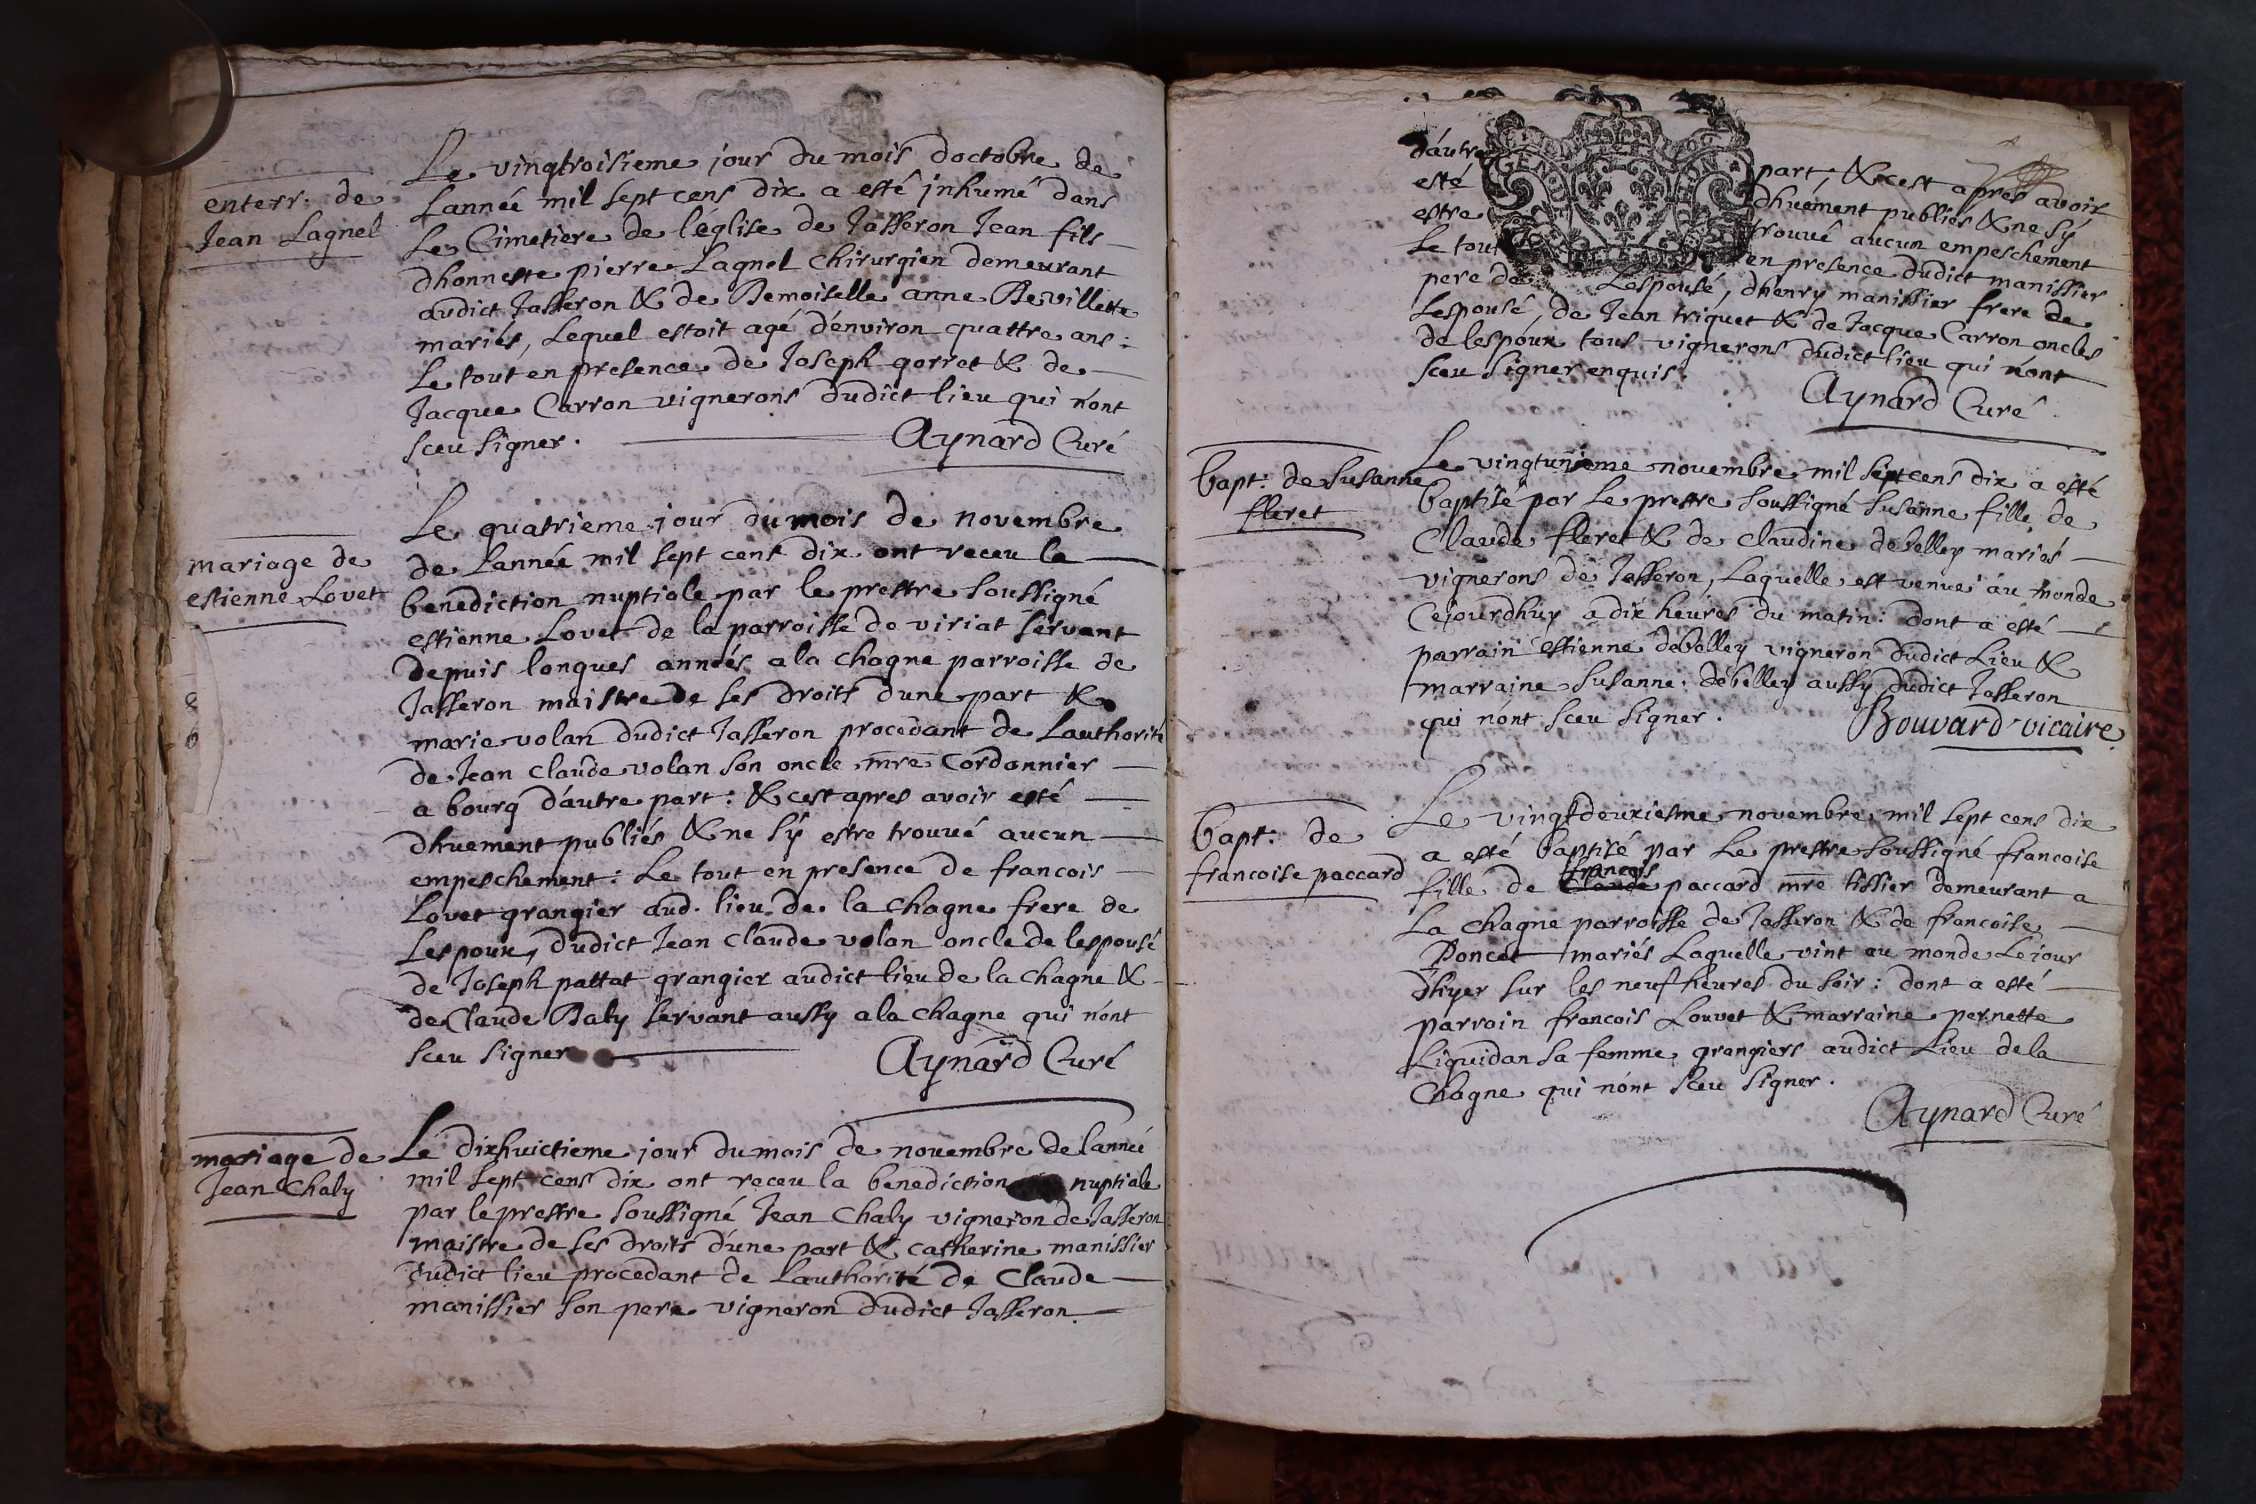 enterr. de
Jean Lagnel
Le vingtroisieme jour du mois doctobre de
Lannée mil sept cens dix a esté jnhumé dans
Le Cimetiere de l'église de Jasseron Jean fils
dhonneste pierre Lagnel chirurgien demeurant
audict Jasseron & de Demoiselle anne Revillette
mariés, Lequel estoit agé d'environ quattre ans:
Le tout en presence de Joseph gorret & de
Jacque Carron vignerons dudict lieu qui n'ont
sceu signer. Aynard Curé
mariage de
estienne Lovet
Le quatrieme jour du mois de novembre
de Lannée mil sept cent dix ont receu la
benediction nuptiale par le prestre soussigné
estienne Lovet de la parroisse de viriat servant
depuis longues années a la chagne parroisse de
Jasseron maistre de ses droits dune part &
marie volan dudict Jasseron procedant de Lauthorité
de Jean claude volan son oncle mre cordonnier
a bourg d'autre part: & cest apres avoir esté
dhuement publiés & ne s'y estre trouué aucun
empeschement: Le tout en presence de francois
Lovet grangier aud. lieu de la chagne frere de
Lespoux, dudict Jean claude volan oncle de lespouse
de Joseph pattat grangier audict lieu de la chagne &
de Claude Baly servant aussy a la chagne qui n'ont
sceu signer Aynard Curé
mariage de
Jean Chaly
Le dixhuictieme jour du mois de novembre de lannée
mil sept cens dix ont receu la benediction nuptiale
par le prestre soussigné Jean Chaly vigneron de Jasseron
maistre de ses droits d'une part & catherine manissier
dudict lieu procedant de Lauthorité de Claude
manissier son pere vigneron dudict Jasseron
d'autre part; & cest apres avoir
esté dhuement publiés & ne s'y
estre trouvé aucun empeschement
Le tout en presence dudict manissier
pere de Lespouse, dhenry manissier frere de
Lespouse, de Jean triquet & de Jacque Carron oncles
de lespoux tous vignerons dudict lieu qui n'ont
sceu signer enquis.
Aynard Curé
bapt. de Susanne
fleret
Le vingtunieme novembre mil sept cens dix a esté
baptisé par Le prestre soussigné Susanne fille de
Claude fleret & de claudine debelley mariés
vignerons de Jasseron, Laquelle est venue au monde
Cejourdhuy a dix heures du matin: dont a esté
parrain estienne debelley vigneron dudict Lieu &
marraine Susanne debelley aussy dudict Jasseron
qui n'ont sceu signer. Bouvard vicaire
bapt. de
francoise paccard
Le vingtdeuxiesme novembre mil sept cens dix
a esté baptisé par Le prestre soussigné francoise
francois
fille de Claude paccard mre tissier demeurant a
La chagne parroisse de Jasseron & de francoise
Poncet mariés Laquelle vint au monde Le jour
d'hyer sur les neuf heures du soir: dont a esté
parrain francois Louvet & marraine pernette
Liquidan sa femme grangiers audict Lieu de la
Chagne qui n'ont sceu signer.
Aynard Curé